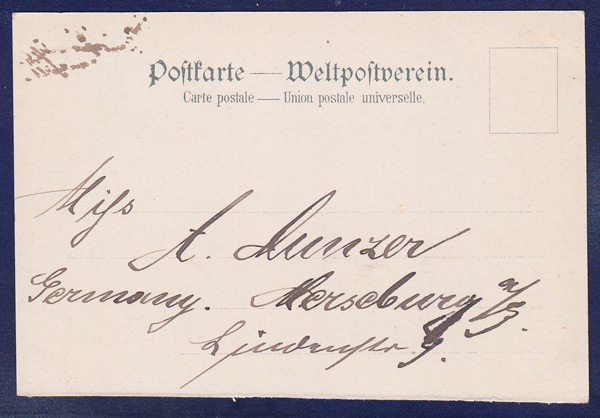 Postkarte — Weltpostverein.
Carte postale — Union postale universelle.
Miss
A. Munzer
Germany. Merseburg a/S.
Lindenstr. 9.